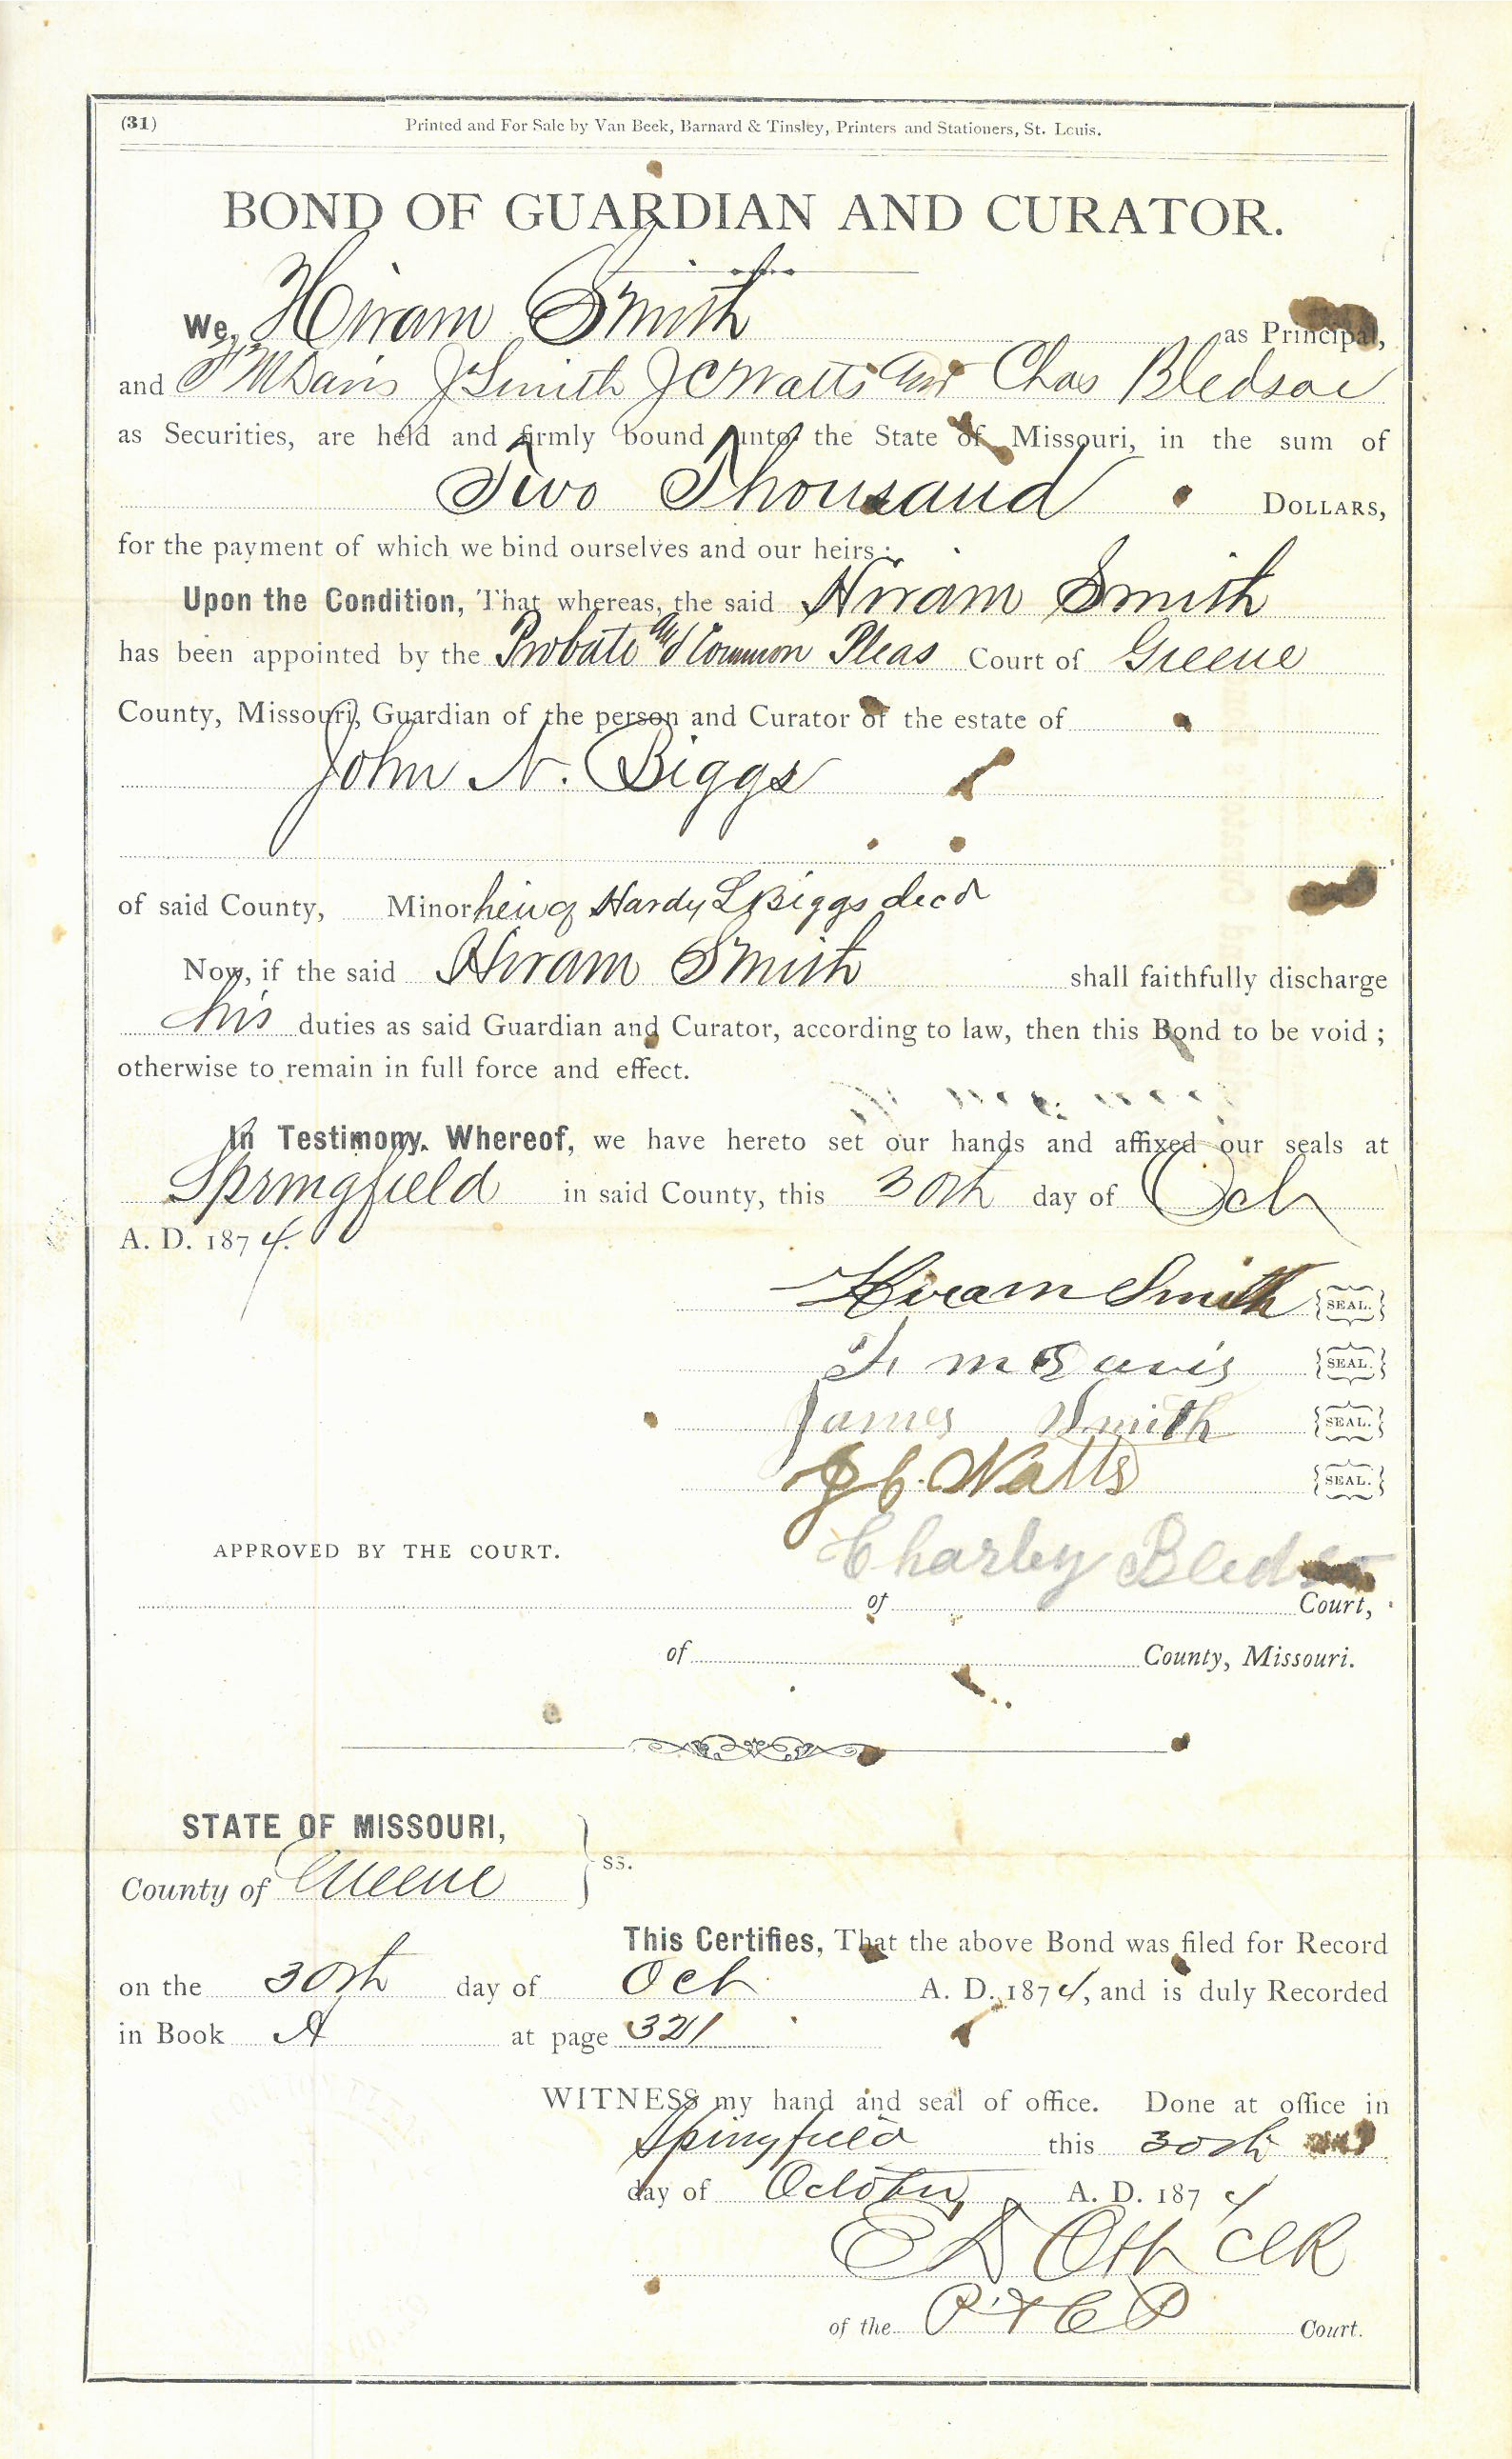 (31)
Printed and For Sale by Van Beek, Barnard & Tinsley, Printers and Stationers, St. Louis.
BOND OF GUARDIAN AND CURATOR.
We, Hiram Smith as Principal,
and F M Davis J Smith J C Watts and Chas Bledsoe
as Securities, are held and firmly bound unto the State of Missouri, in the sum of
Two Thousand DOLLARS,
for the payment of which we bind ourselves and our heirs;
Upon the Condition, That whereas, the said Hiram Smith
has been appointed by the Probate and Common Pleas Court of Greene
County, Missouri, Guardian of the person and Curator of the estate of
John N. Biggs
of said County, Minor heir of Hardy L Biggs decd
Now, if the said Hiram Smith shall faithfully discharge
his duties as said Guardian and Curator, according to law, then this Bond to be void;
otherwise to remain in full force and effect.
In Testimony Whereof, we have hereto set our hands and affixed our seals at
Springfield in said County, this 30th day of Oct
A. D. 1874.
Hiram Smith {SEAL.}
F. M Davis {SEAL.}
James Smith {SEAL.}
J C. Watts {SEAL.}
Charley Bledso
APPROVED BY THE COURT.
of Court,
of County, Missouri.
STATE OF MISSOURI,
County of Greene } ss.
This Certifies, That the above Bond was filed for Record
on the 30th day of Oct A. D. 1874, and is duly Recorded
in Book A at page 321
WITNESS my hand and seal of office. Done at office in
Springfield this 30th
day of October A. D. 1874
E D Ott Clk
of the P. & C P Court.